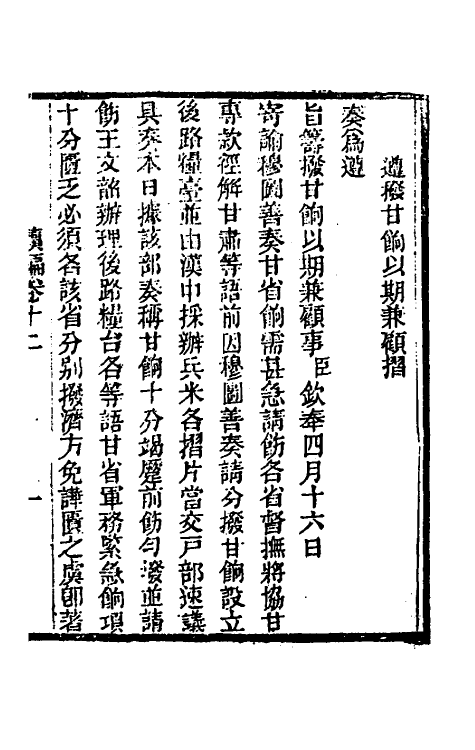 遵撥甘餉以期兼顧摺
奏爲遵
旨籌撥甘餉以期兼顧事臣欽奉四月十六日
寄諭穆圖善奏甘省餉需甚急請飭各省督撫將協甘
專款徑解甘肅等語前因穆圖善奏請分撥甘餉設立
後路糧臺並由漢中採辦兵米各摺片當交戸部速議
具奏本日據該部奏稱甘餉十分竭蹷前飭勻潑並請
飭王文韶辦理後路糧台各等語甘省軍務緊急餉項
十分匱乏必須各該省分別撥濟方免譁匱之虞卽著
續編卷十二 一